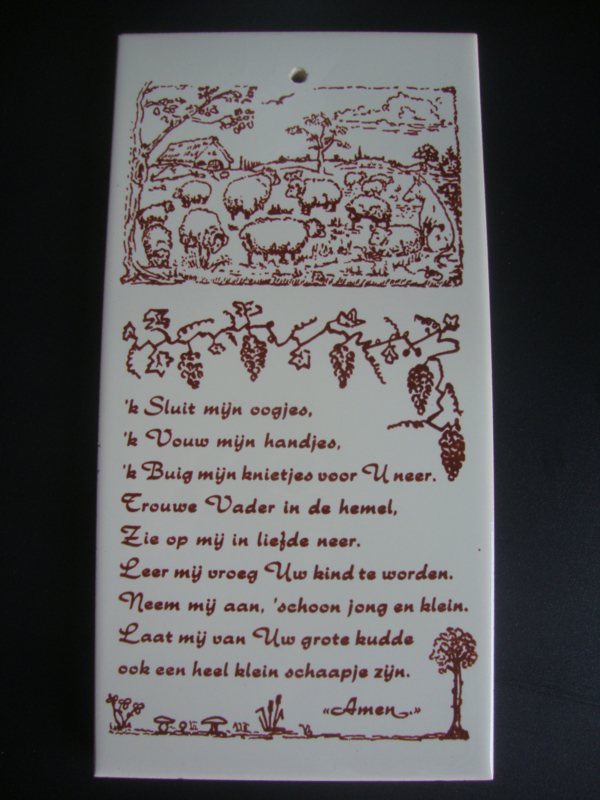 'k Sluit mijn oogjes,
'k Vouw mijn handjes,
'k Buig mijn knietjes voor U neer.
Trouwe Vader in de hemel,
Zie op mij in liefde neer.
Leer mij vroeg Uw kind te worden.
Neem mij aan, 'schoon jong en klein.
Laat mij van Uw grote kudde
ook een heel klein schaapje zijn.
«Amen.»